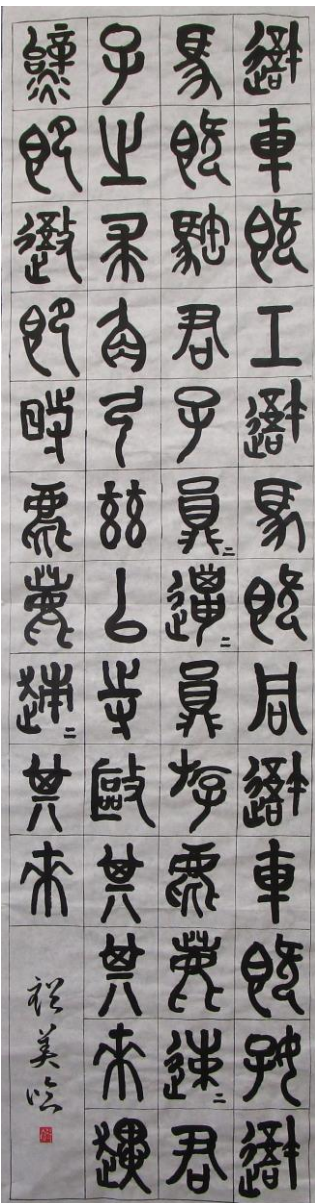 避車既工避馬既同避車既好避
馬既騊君子員=邋=員斿麀鹿速=君
子之求角弓茲以寺敺其其來趩
即御即時麀鹿趚=其來
美臨